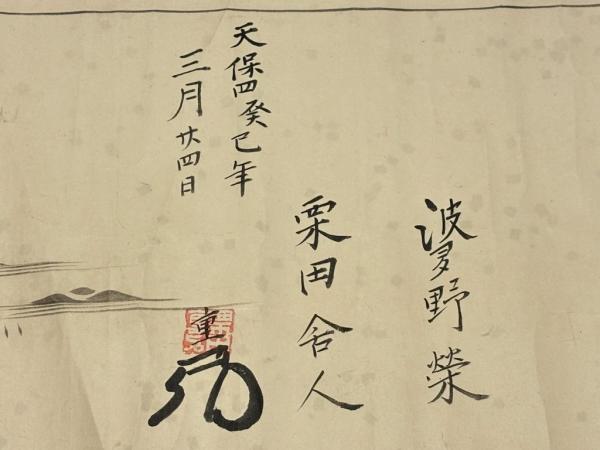 波多野榮
栗田舎人
天保四癸巳年
三月廿四日
重